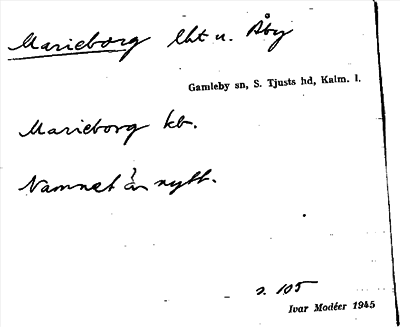 Marieborg lht u. Åby
Gamleby sn, S. Tjusts hd, Kalm. l.
Marieborg kb.
Namnet är nytt.
s. 105
Ivar Modéer 1945